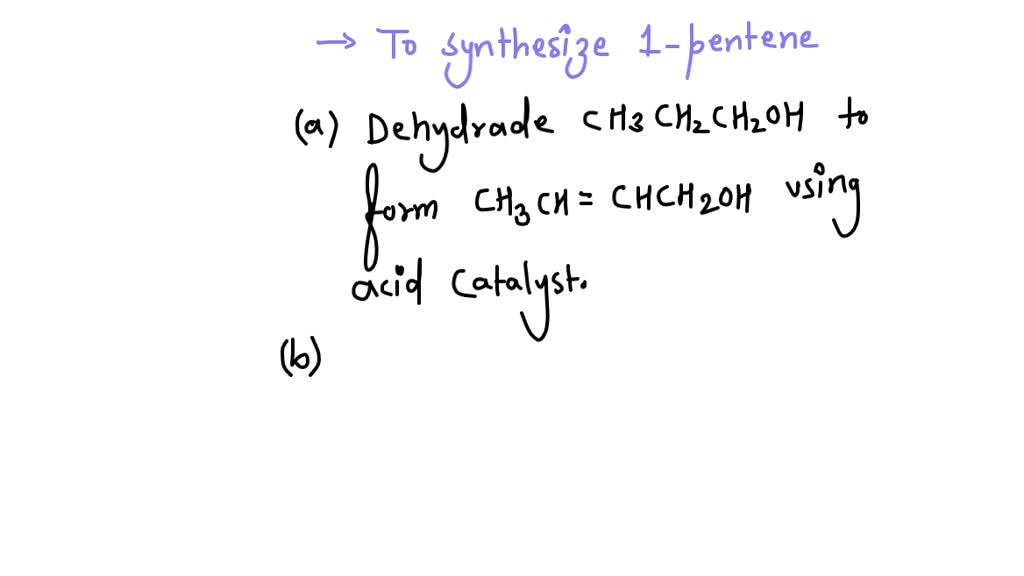 → To synthesize 1-pentene
(a) Dehydrade CH3CH2CH2OH to
form CH3CH = CHCH2OH using
acid catalyst.
(b)